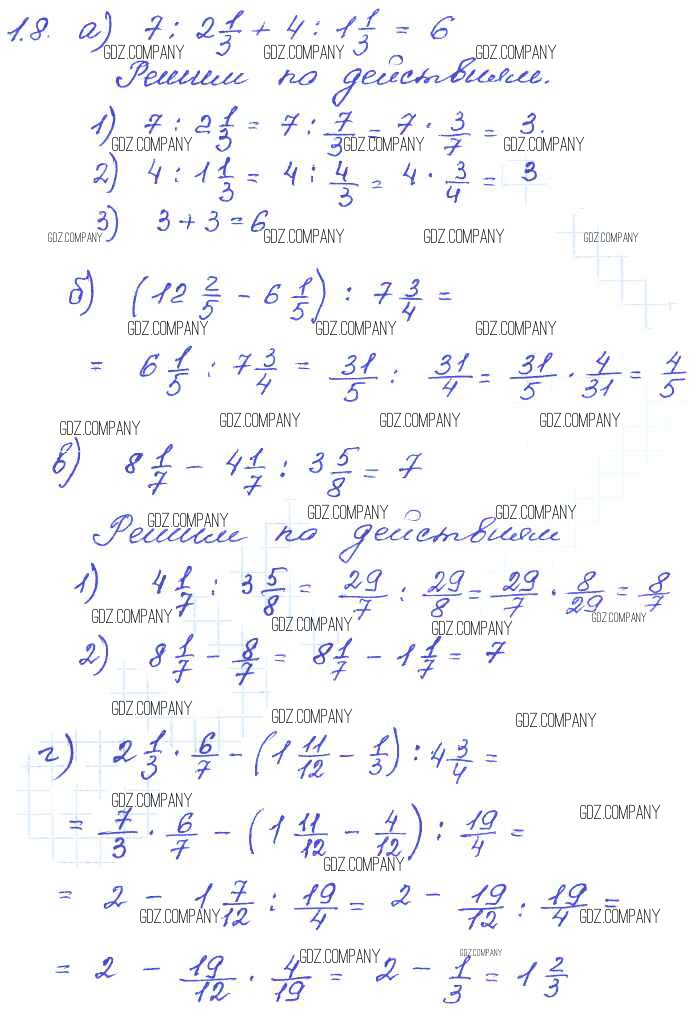 1.8. а) 7 : 2 1/3 + 4 : 1 1/3 = 6
GDZ.COMPANY GDZ.COMPANY GDZ.COMPANY
Решим по действиям.
1) 7 : 2 1/3 = 7 : 7/3 = 7 · 3/7 = 3.
GDZ.COMPANY GDZ.COMPANY GDZ.COMPANY
2) 4 : 1 1/3 = 4 : 4/3 = 4 · 3/4 = 3
3) 3 + 3 = 6
GDZ.COMPANY GDZ.COMPANY GDZ.COMPANY GDZ.COMPANY
б) (12 2/5 - 6 1/5) : 7 3/4 =
GDZ.COMPANY GDZ.COMPANY GDZ.COMPANY
= 6 1/5 : 7 3/4 = 31/5 : 31/4 = 31/5 · 4/31 = 4/5
GDZ.COMPANY GDZ.COMPANY GDZ.COMPANY GDZ.COMPANY
в) 8 1/7 - 4 1/7 : 3 5/8 = 7
GDZ.COMPANY GDZ.COMPANY GDZ.COMPANY
Решим по действиям
1) 4 1/7 : 3 5/8 = 29/7 : 29/8 = 29/7 · 8/29 = 8/7
GDZ.COMPANY GDZ.COMPANY GDZ.COMPANY GDZ.COMPANY
2) 8 1/7 - 8/7 = 8 1/7 - 1 1/7 = 7
GDZ.COMPANY GDZ.COMPANY GDZ.COMPANY
г) 2 1/3 · 6/7 - (1 11/12 - 1/3) : 4 3/4 =
GDZ.COMPANY GDZ.COMPANY
= 7/3 · 6/7 - (1 11/12 - 4/12) : 19/4 =
GDZ.COMPANY
= 2 - 1 7/12 : 19/4 = 2 - 19/12 : 19/4 =
GDZ.COMPANY GDZ.COMPANY GDZ.COMPANY
= 2 - 19/12 · 4/19 = 2 - 1/3 = 1 2/3
GDZ.COMPANY GDZ.COMPANY